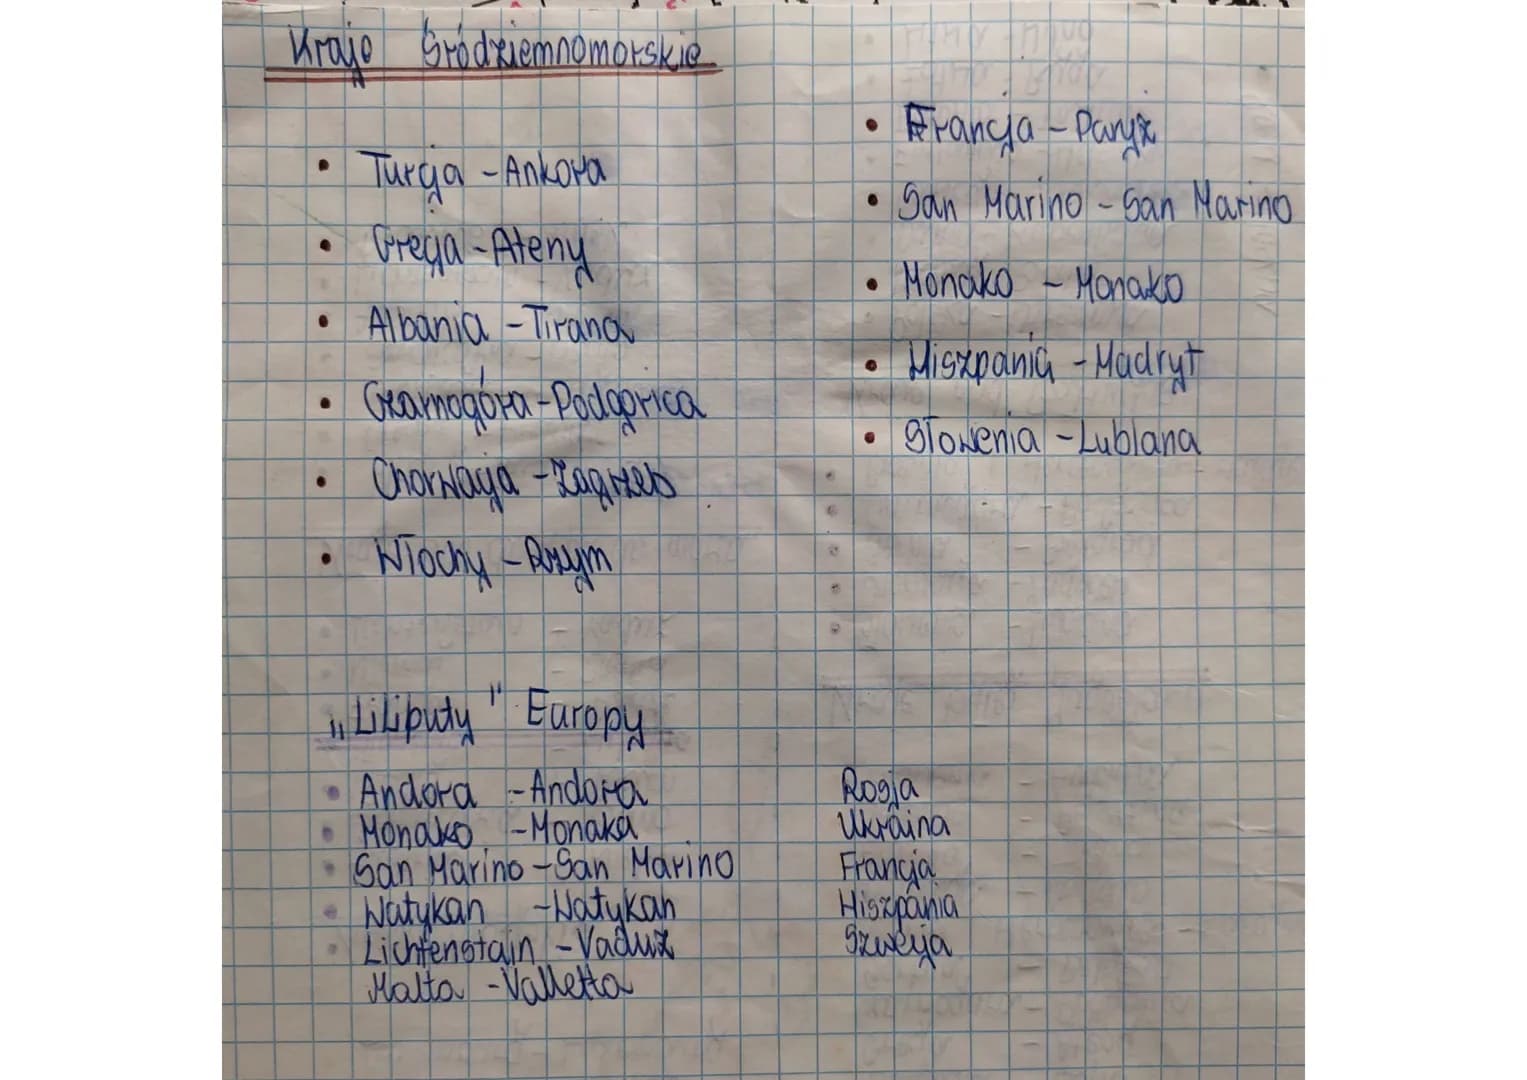 Kraje Śródziemnomorskie
• Turcja - Ankara
• Grecja - Ateny
• Albania - Tirana
• Czarnogóra - Podgorica
• Chorwacja - Zagrzeb
• Włochy - Rzym
• Francja - Paryż
• San Marino - San Marino
• Monako - Monako
• Hiszpania - Madryt
• Słowenia - Lublana
„Liliputy" Europy
• Andora - Andora
• Monako - Monako
• San Marino - San Marino
• Watykan - Watykan
• Lichtenstain - Vaduz
Malta - Valletta
Rosja
Ukraina
Francja
Hiszpania
Szwecja